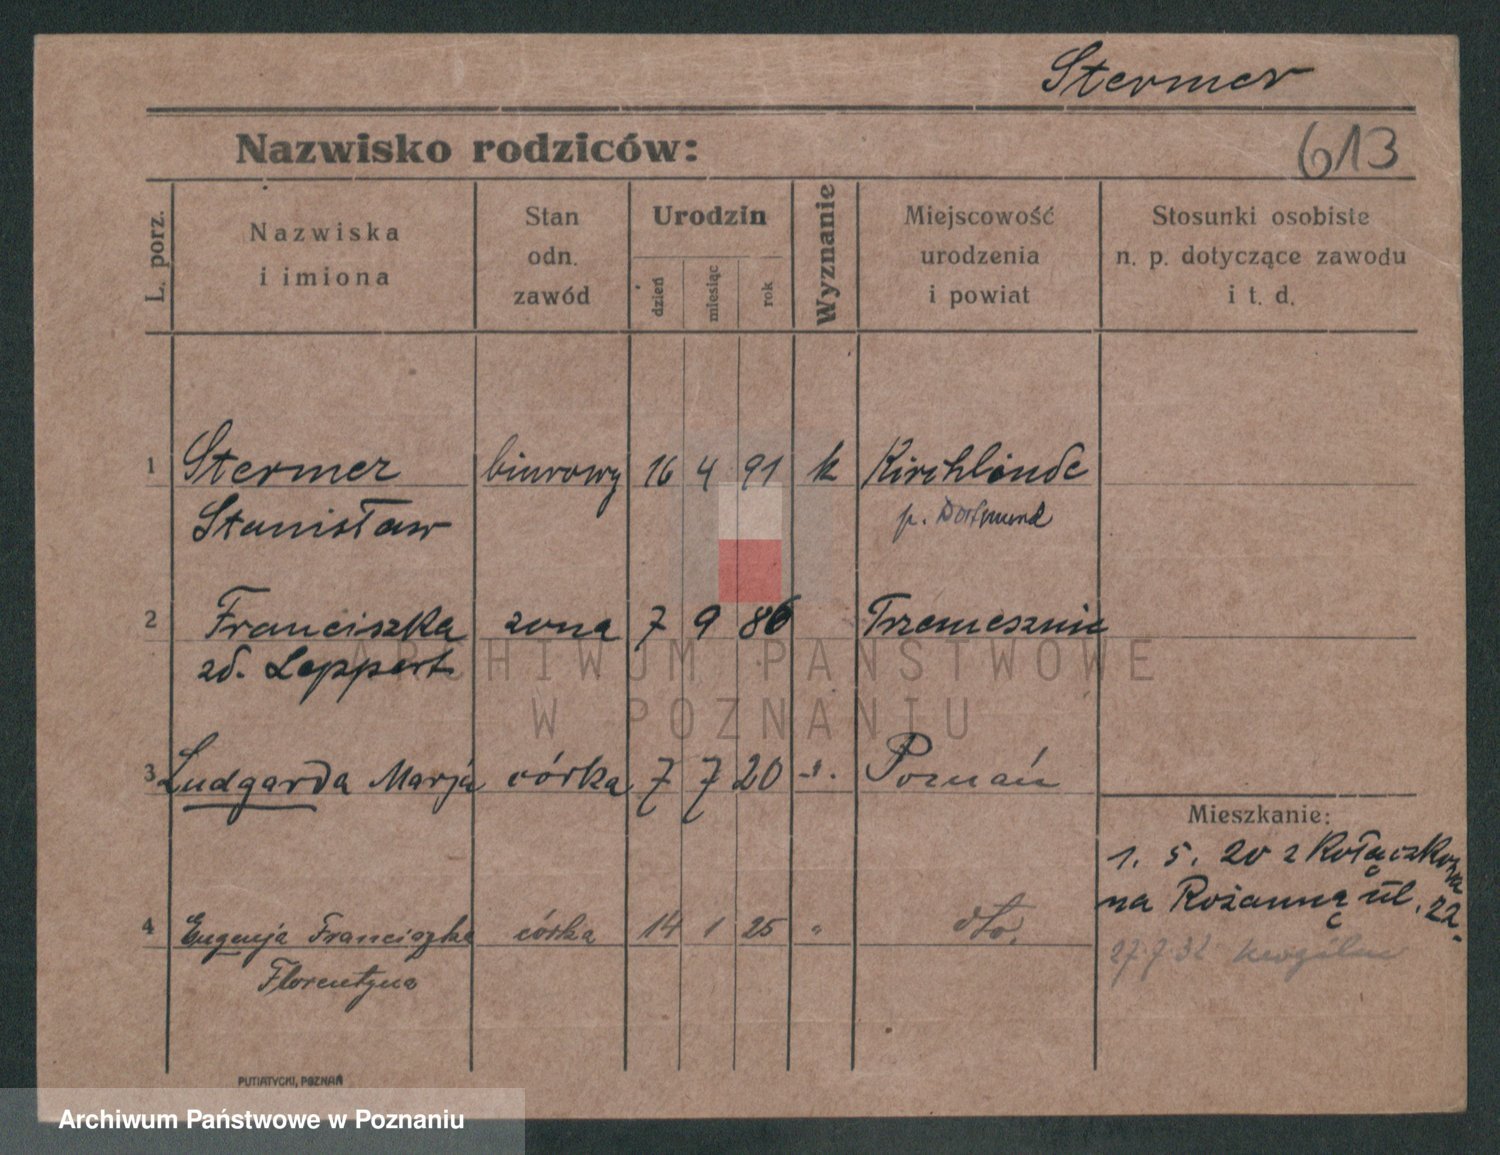 Stermer
Nazwisko rodziców:
613
L. porz.
Nazwiska
i imiona
Stan
odn.
zawód
Urodzin
dzień
miesiąc
rok
Wyznanie
Miejscowość
urodzenia
i powiat
Stosunki osobiste
n. p. dotyczące zawodu
i t. d.
1 Stermer biurowy 16 4 91 k Kirchlinde
Stanisław p. Dortmund
2 Franciszka żona 7 9 86 Trzemeszni
zd. Leppert
ARCHIWUM PAŃSTWOWE
W POZNANIU
3 Ludgarda Marja córka 7 7 20 -"- Poznań
Mieszkanie:
1. 5. 20 z Kołaczkowa
na Rożanną ul. 22.
4 Eugenja Franciszka córka 14 1 25 " dto.
Florentyna
27 7 32
PUTIATYCKI, POZNAŃ
Archiwum Państwowe w Poznaniu